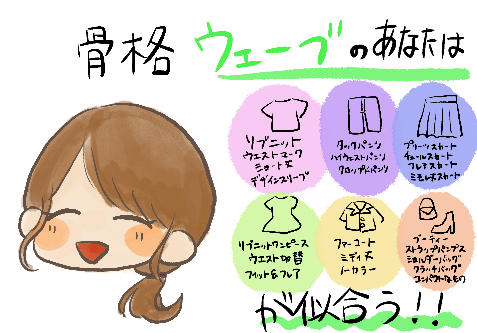 骨格 ウェーブのあなたは
リブニット
ウエストマーク
ショート丈
デザインスリーブ
タックパンツ
ハイウエストパンツ
クロップドパンツ
プリーツスカート
チュールスカート
フレアスカート
ミモレ丈スカート
リブニットワンピース
ウエスト切替
フィット&フレア
ファーコート
ミディ丈
ノーカラー
ブーティー
ストラップパンプス
ショルダーバッグ
クラッチバッグ
コンパクトなもの
が似合う!!